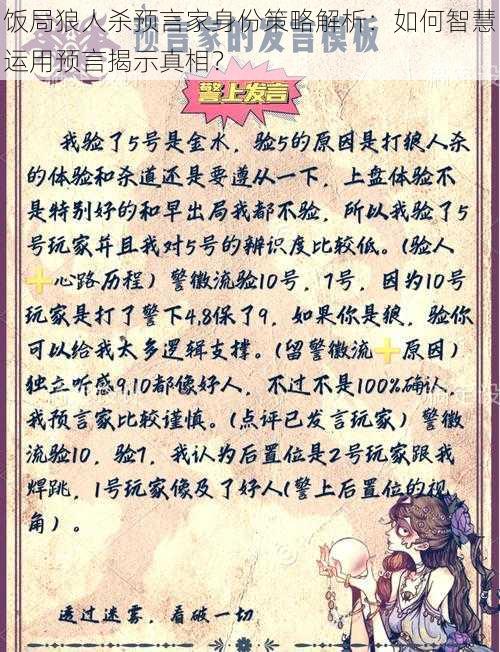 饭局狼人杀预言家身份策略解析：如何智慧
运用预言揭示真相？
预言家的发言模板
警上发言
我验了5号是金水，验5的原因是打狼人杀
的体验和杀道还是要遵从一下，上盘体验不
是特别好的和早出局我都不验，所以我验了5
号玩家并且我对5号的辨识度比较低。(验人
+心路历程）警徽流验10号，7号，因为10号
玩家是打了警下4,8保了9，如果你是狼，验你
可以给我太多逻辑支撑。(留警徽流+原因）
独立听感9,10都像好人，不过不是100%确认，
我预言家比较谨慎。(点评已发言玩家）警徽
流验10，验7，我认为后置位是2号玩家跟我
焊跳，1号玩家像及了好人(警上后置位的视
角）。
透过迷雾，看破一切